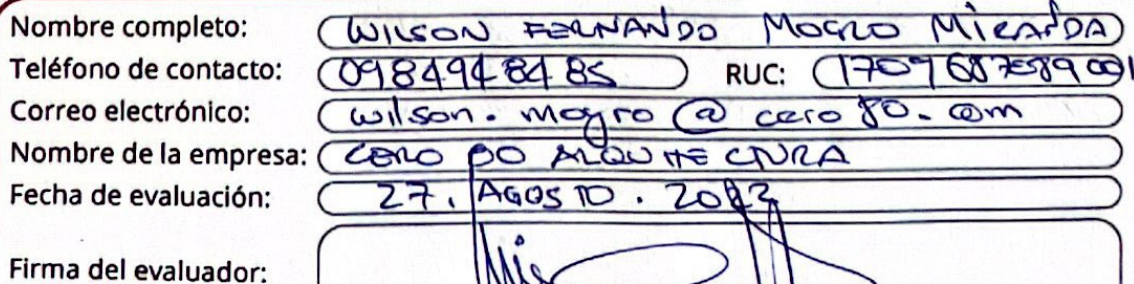 Nombre completo: WILSON FERNANDO MOGRO MIRANDA
Teléfono de contacto: 0984948485 RUC: 1709687589001
Correo electrónico: wilson.mogro@cero80.com
Nombre de la empresa: CERO 80 ARQUITECTURA
Fecha de evaluación: 27. AGOSTO. 2022
Firma del evaluador: